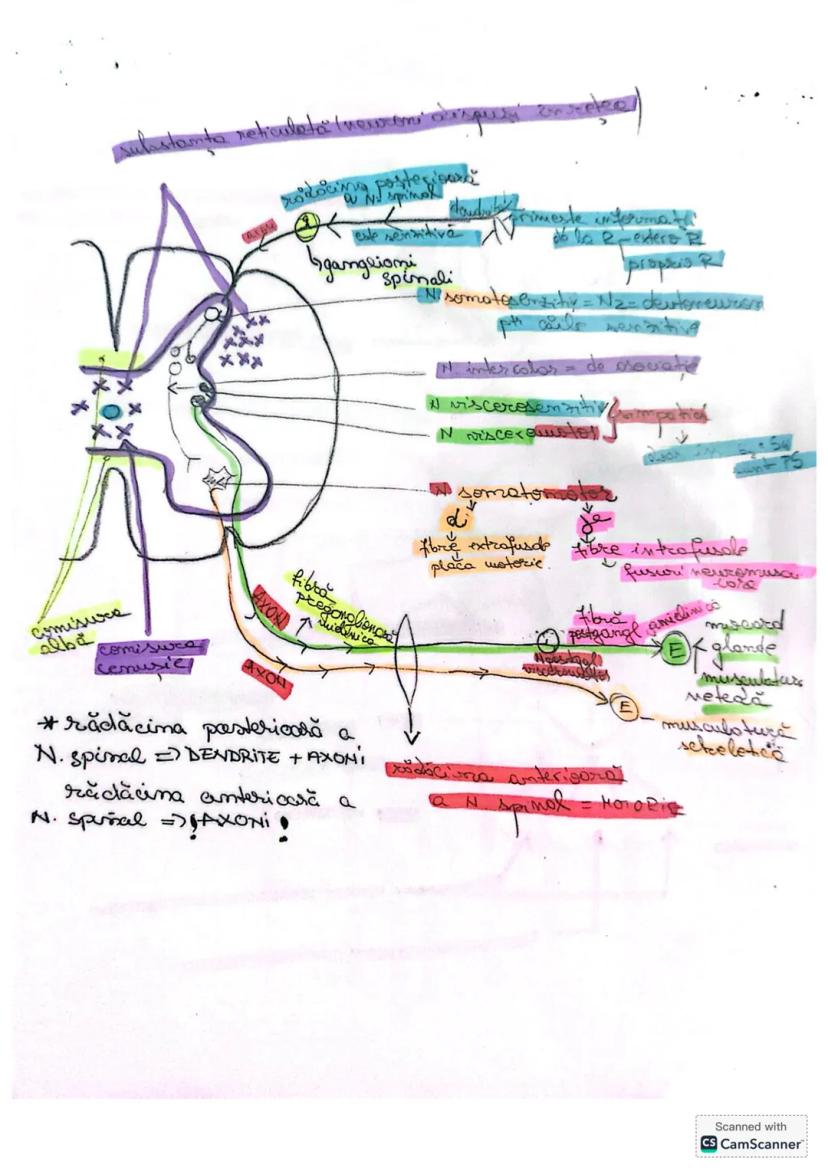 substanța reticulată (neuroni dispuși în rețea)
rădăcina posterioară
a N. spinal
dendrită
axon
g
este senzitivă
primește informații
de la R extero R
proprio R
ganglioni
spinali
N somatosenzitiv = N2 = deutoneuron
pt căile senzitive
N. intercalar = de asociație
N viscerosenzitiv
N visceromotor
simpatici
N somatomotor
α
fibre extrafusale
placa motorie
fibre intrafusale
fusuri neuromusculare
comisura
albă
comisura
cenușie
AXON
fibră
preganglionară
mielinică
AXON
fibră
postgangl. amielinică
E
miocard
glande
musculatura
netedă
E
musculatură
scheletică
* rădăcina posterioară a
N. spinal => DENDRITE + AXONI
rădăcina anterioară a
N. spinal => ! AXONI !
rădăcina anterioară
a N. spinal = MOTORIE
Scanned with
CS CamScanner